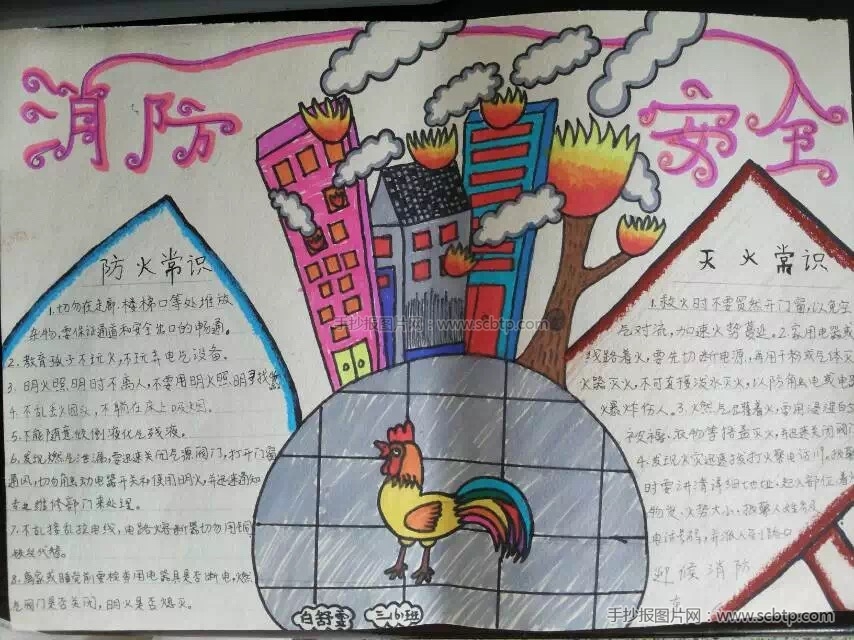 消防
安全
防火常识
1.切勿在走廊、楼梯口等处堆放
杂物,要保证通道和安全出口的畅通。
2.教育孩子不玩火,不玩弄电气设备。
3.明火照明时不离人,不要用明火照明寻找
4.不乱丢烟头,不躺在床上吸烟。
5.不能随意倾倒液化气残液。
6.发现燃气泄漏,要迅速关闭气源阀门,打开门窗
通风,切勿触动电器开关和使用明火,并迅速通知
专业维修部门来处理。
7.不乱接乱拉电线,电路熔断器切勿用铜
铁丝代替。
8.离家或睡觉前要检查用电器具是否断电,燃
气阀门是否关闭,明火是否熄灭。
灭火常识
1.救火时不要贸然开门窗,以免空
气对流,加速火势蔓延。2.家用电器或
线路着火,要先切断电源,再用干粉或气体灭
火器灭火,不可直接泼水灭火,以防触电或电器
爆炸伤人。3.燃气罐着火,要用浸湿的
被褥、衣物等捂盖灭火,并迅速关闭阀门
4.发现火灾迅速拨打火警电话119。报警
时要讲清详细地址、起火部位、着
物质、火势大小、报警人姓名及
电话号码,并派人到路口
迎候消防
车
白舒雯
三(6)班
手抄报图片网:www.scbtp.com
手抄报图片网:www.scbtp.com